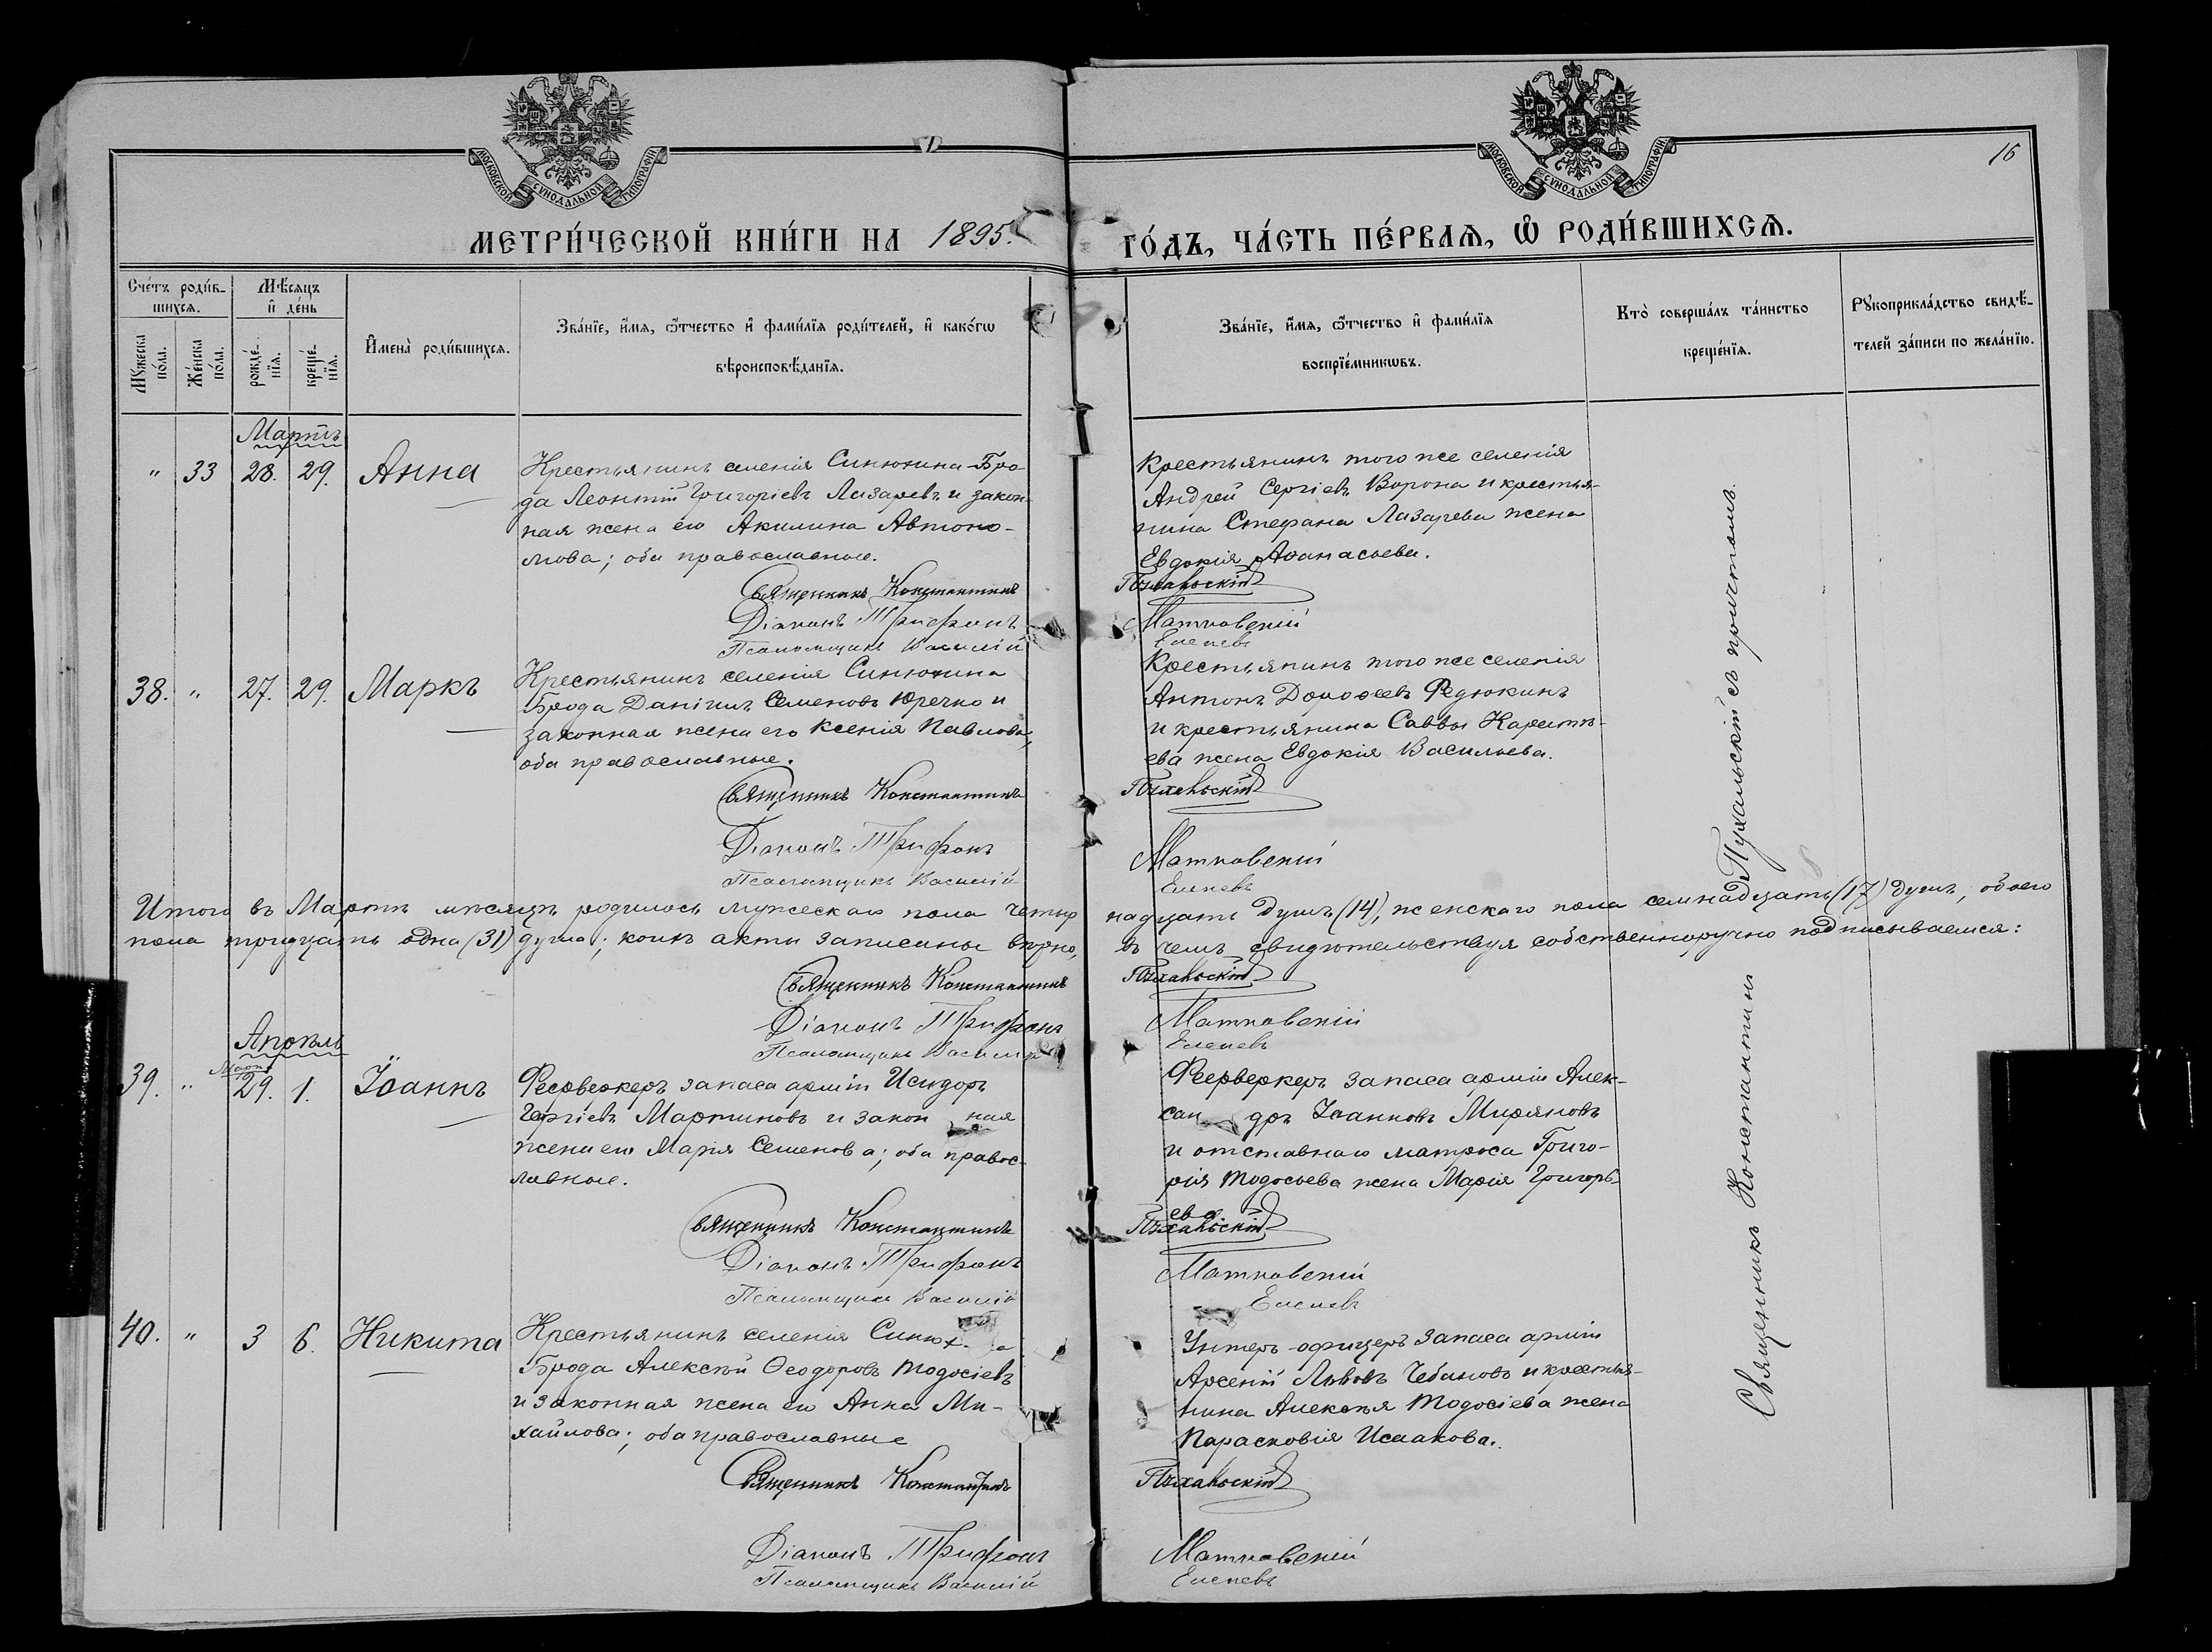 МОСКОВСКОЙ СУНОДАЛЬНОЙ ТИПОГРАФІИ
МОСКОВСКОЙ СУНОДАЛЬНОЙ ТИПОГРАФІИ
16
МЕТРИ́ЧЕСКОЙ КНИ́ГИ НА 1895.
ГО́ДЪ, ЧА́СТЬ ПЕ́РВАЯ, Ѡ РОДИ́ВШИХСЯ.
Сче́тъ роди́в-
шихся.
Мꙋ́жеска по́ла.
Же́нска по́ла.
Мѣ́сяцъ
и҆ де́нь
рожде́-
нїя.
креще́-
нїя.
И҆мена̀ роди́вшихся.
Зва́нїе, и҆́мя, ѻ҆́тчество и҆ фами́лїя роди́телей, и҆ како́гѡ
вѣроисповѣ́данїя.
Зва́нїе, и҆́мя, ѻ҆́тчество и҆ фами́лїя
воспрїе́мникѡвъ.
Кто̀ соверша́лъ та́инство
креще́нїя.
Рꙋкоприкла́дство свидѣ́-
телей за́писи по жела́нїю.
Мартъ
" 33 28. 29. Анна
Крестьянинъ селенія Синюхина-Бро-
да Леонтій Григоріевъ Лазаревъ и закон-
ная жена его Акилина Автоно-
мова; оба православные.
Священникъ Константинъ
Діаконъ Трифонъ
Псаломщикъ Василій
Крестьянинъ того же селенія
Андрей Сергіевъ Ворона и крестья-
нина Стефана Лазарева жена
Евдокія Аѳанасьева.
Пухальскій
Матковскій
Елепевъ
38. " 27. 29. Маркъ
Крестьянинъ селенія Синюхина
Брода Даніилъ Семеновъ Юречко и
законная жена его Ксенія Павлова,
оба православные.
Священникъ Константинъ
Діаконъ Трифонъ
Псаломщикъ Василій
Крестьянинъ того же селенія
Антонъ Дороѳеевъ Федюкинъ
и крестьянина Саввы
ева жена Евдокія Васильева.
Пухальскій
Матковскій
Елепевъ
Итого въ Мартѣ мѣсяцѣ родилось мужескаго пола четыр
надцать душъ (14), женскаго пола семнадцать (17) душъ, обоего
пола тридцать одна (31) душа; коихъ акты записаны вѣрно,
въ чемъ свидѣтельствуя собственноручно подписываемся:
Священникъ Константинъ
Діаконъ Трифонъ
Псаломщикъ Василій
Пухальскій
Матковскій
Елепевъ
Апрѣль
Марта
39. " 29. 1. Іоаннъ
Фейерверкеръ запаса арміи Исидоръ
Георгіевъ Мартиновъ и законная
жена его Марія Семенова; оба правос-
лавные.
Священникъ Константинъ
Діаконъ Трифонъ
Псаломщикъ Василій
Фейерверкеръ запаса арміи Алек-
сандръ Іоанновъ Миряновъ
и отставнаго матроса Григо-
рія Тодосьева жена Марія Григорь-
ева
Пухальскій
Матковскій
Елепевъ
40. " 3 6. Никита
Крестьянинъ селенія Синюх
Брода Алексѣй Ѳеодоровъ Тодосіевъ
и законная жена его Анна Ми-
хайлова; оба православные
Священникъ Константинъ
Діаконъ Трифонъ
Псаломщикъ Василій
Унтеръ-офицеръ запаса арміи
Арсеній Львовъ Чебановъ и крестья-
нина Алексѣя Тодосіева жена
Парасковія Исаакова.
Пухальскій
Матковскій
Елепевъ
Священникъ Константинъ Пухальскій съ причтомъ.